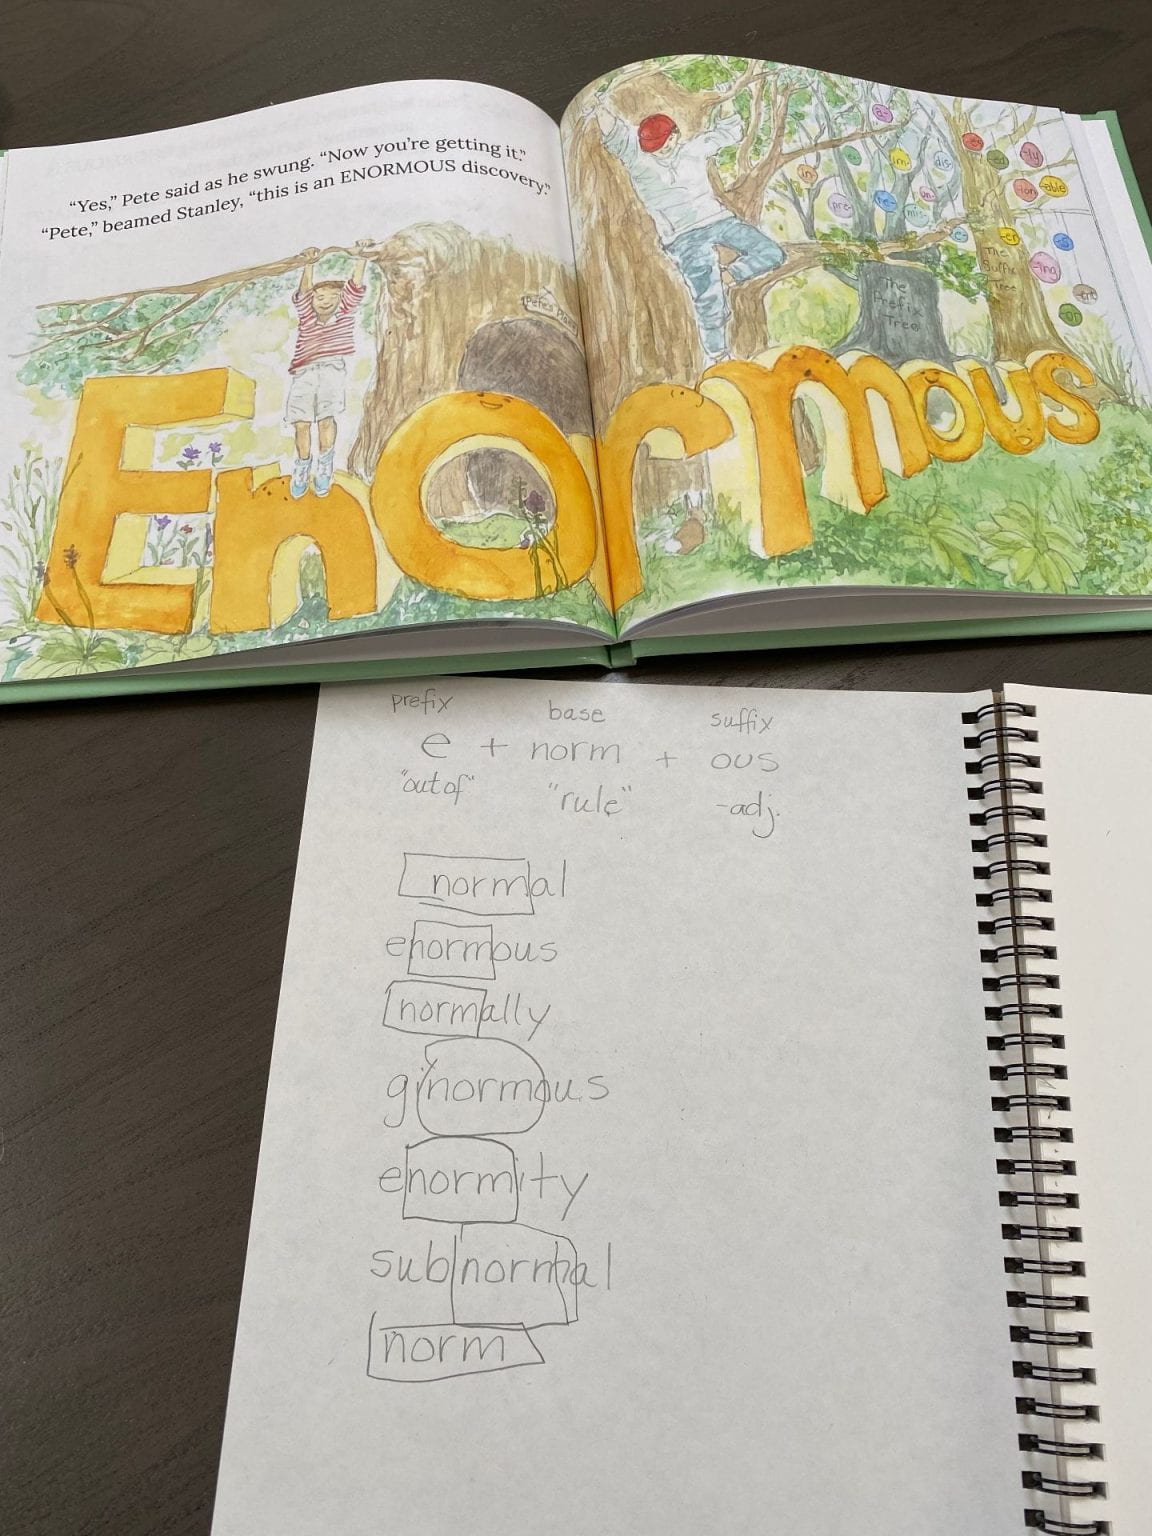 “Yes,” Pete said as he swung. “Now you’re getting it.”
“Pete,” beamed Stanley, “this is an ENORMOUS discovery.”
Pete's Place
in-
im-
dis-
pre-
re-
un-
mis-
The
Prefix
Tree
-er
-ed
-ly
-ion
-able
-s
-ing
-or
The
Suffix
Tree
Enormous
prefix base suffix
e + norm + ous
"out of" "rule" -adj.
normal
enormous
normally
ginormous
enormity
subnormal
norm